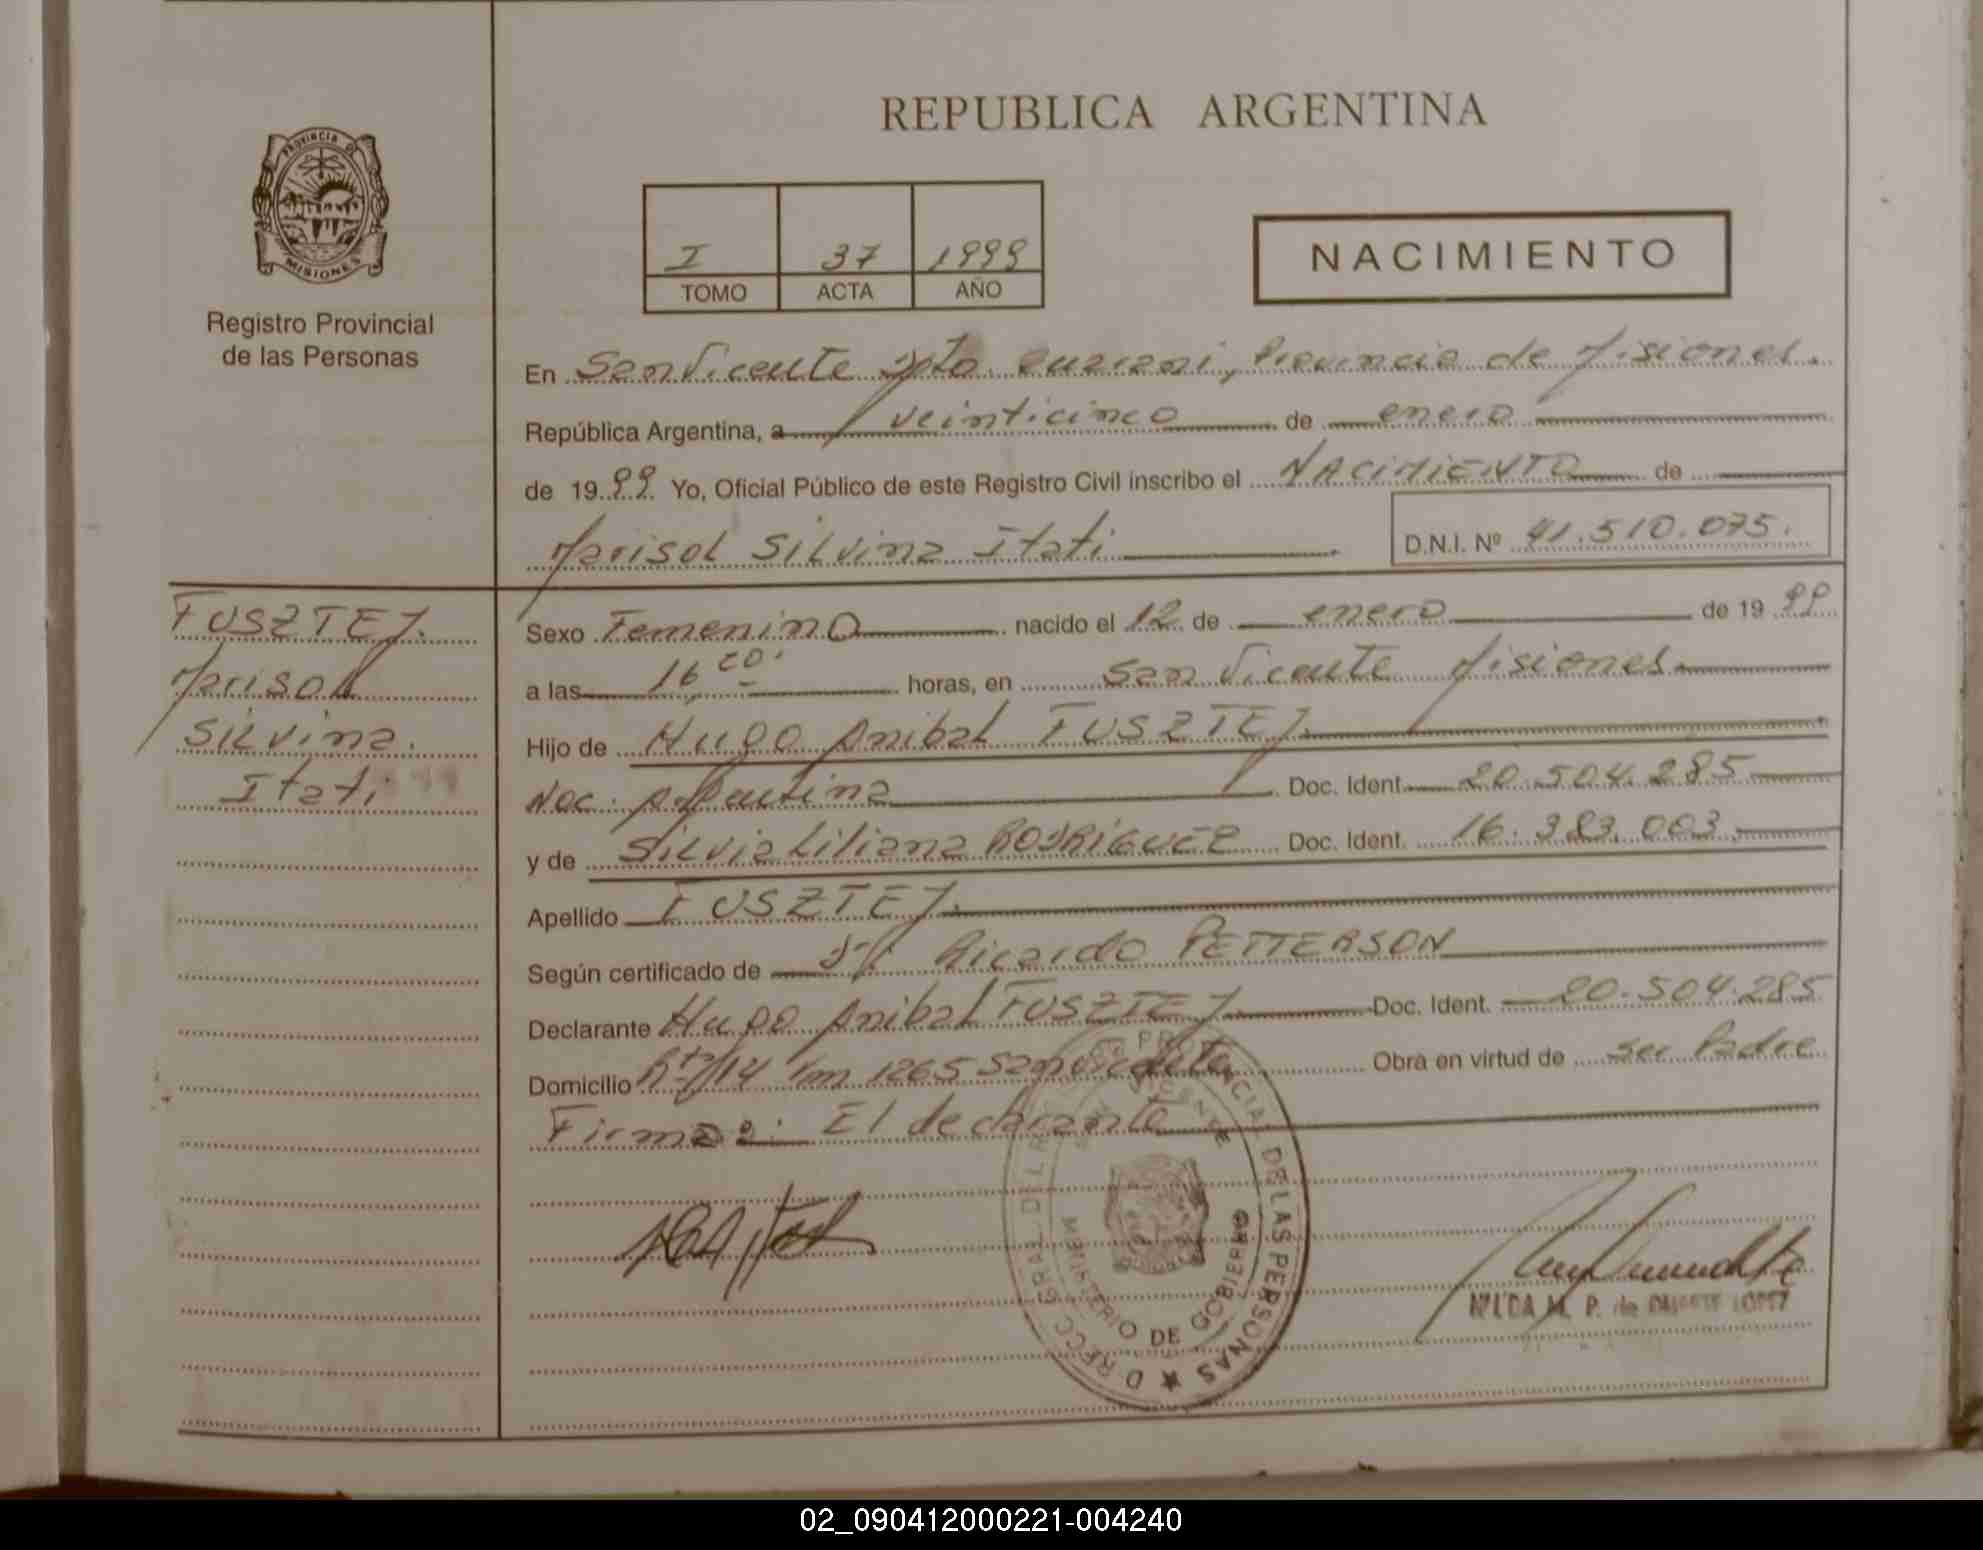 REPUBLICA ARGENTINA
PROVINCIA DE
MISIONES
Registro Provincial
de las Personas
I 37 1999
TOMO ACTA AÑO
NACIMIENTO
En San Vicente Dpto. Guarani, Provincia de Misiones.
República Argentina, a veinticinco de enero
de 1999. Yo, Oficial Público de este Registro Civil inscribo el NACIMIENTO de
Marisol Silvina Itati D.N.I. Nº 41.510.075.
FUSZTEJ.
Marisol
Silvina.
Itati
Sexo Femenino nacido el 12 de enero de 1999
a las 16 horas, en San Vicente Misiones
Hijo de Hugo Anibal FUSZTEJ.
Nac. Argentina Doc. Ident. 20.504.285
y de Silvia Liliana RODRIGUEZ Doc. Ident. 16.383.003
Apellido FUSZTEJ.
Según certificado de Dr. Ricardo PETTERSON
Declarante Hugo Anibal FUSZTEJ Doc. Ident. 20.504.285
Domicilio Rta/14 Km 1265 San Vicente Obra en virtud de ser Padre
Firmas: El declarante
PROVINCIAL DE LAS PERSONAS ★ DIRECC. GRAL. DEL
SAN VICENTE
MINISTERIO DE GOBIERNO
M. P. de LOPEZ
02_090412000221-004240